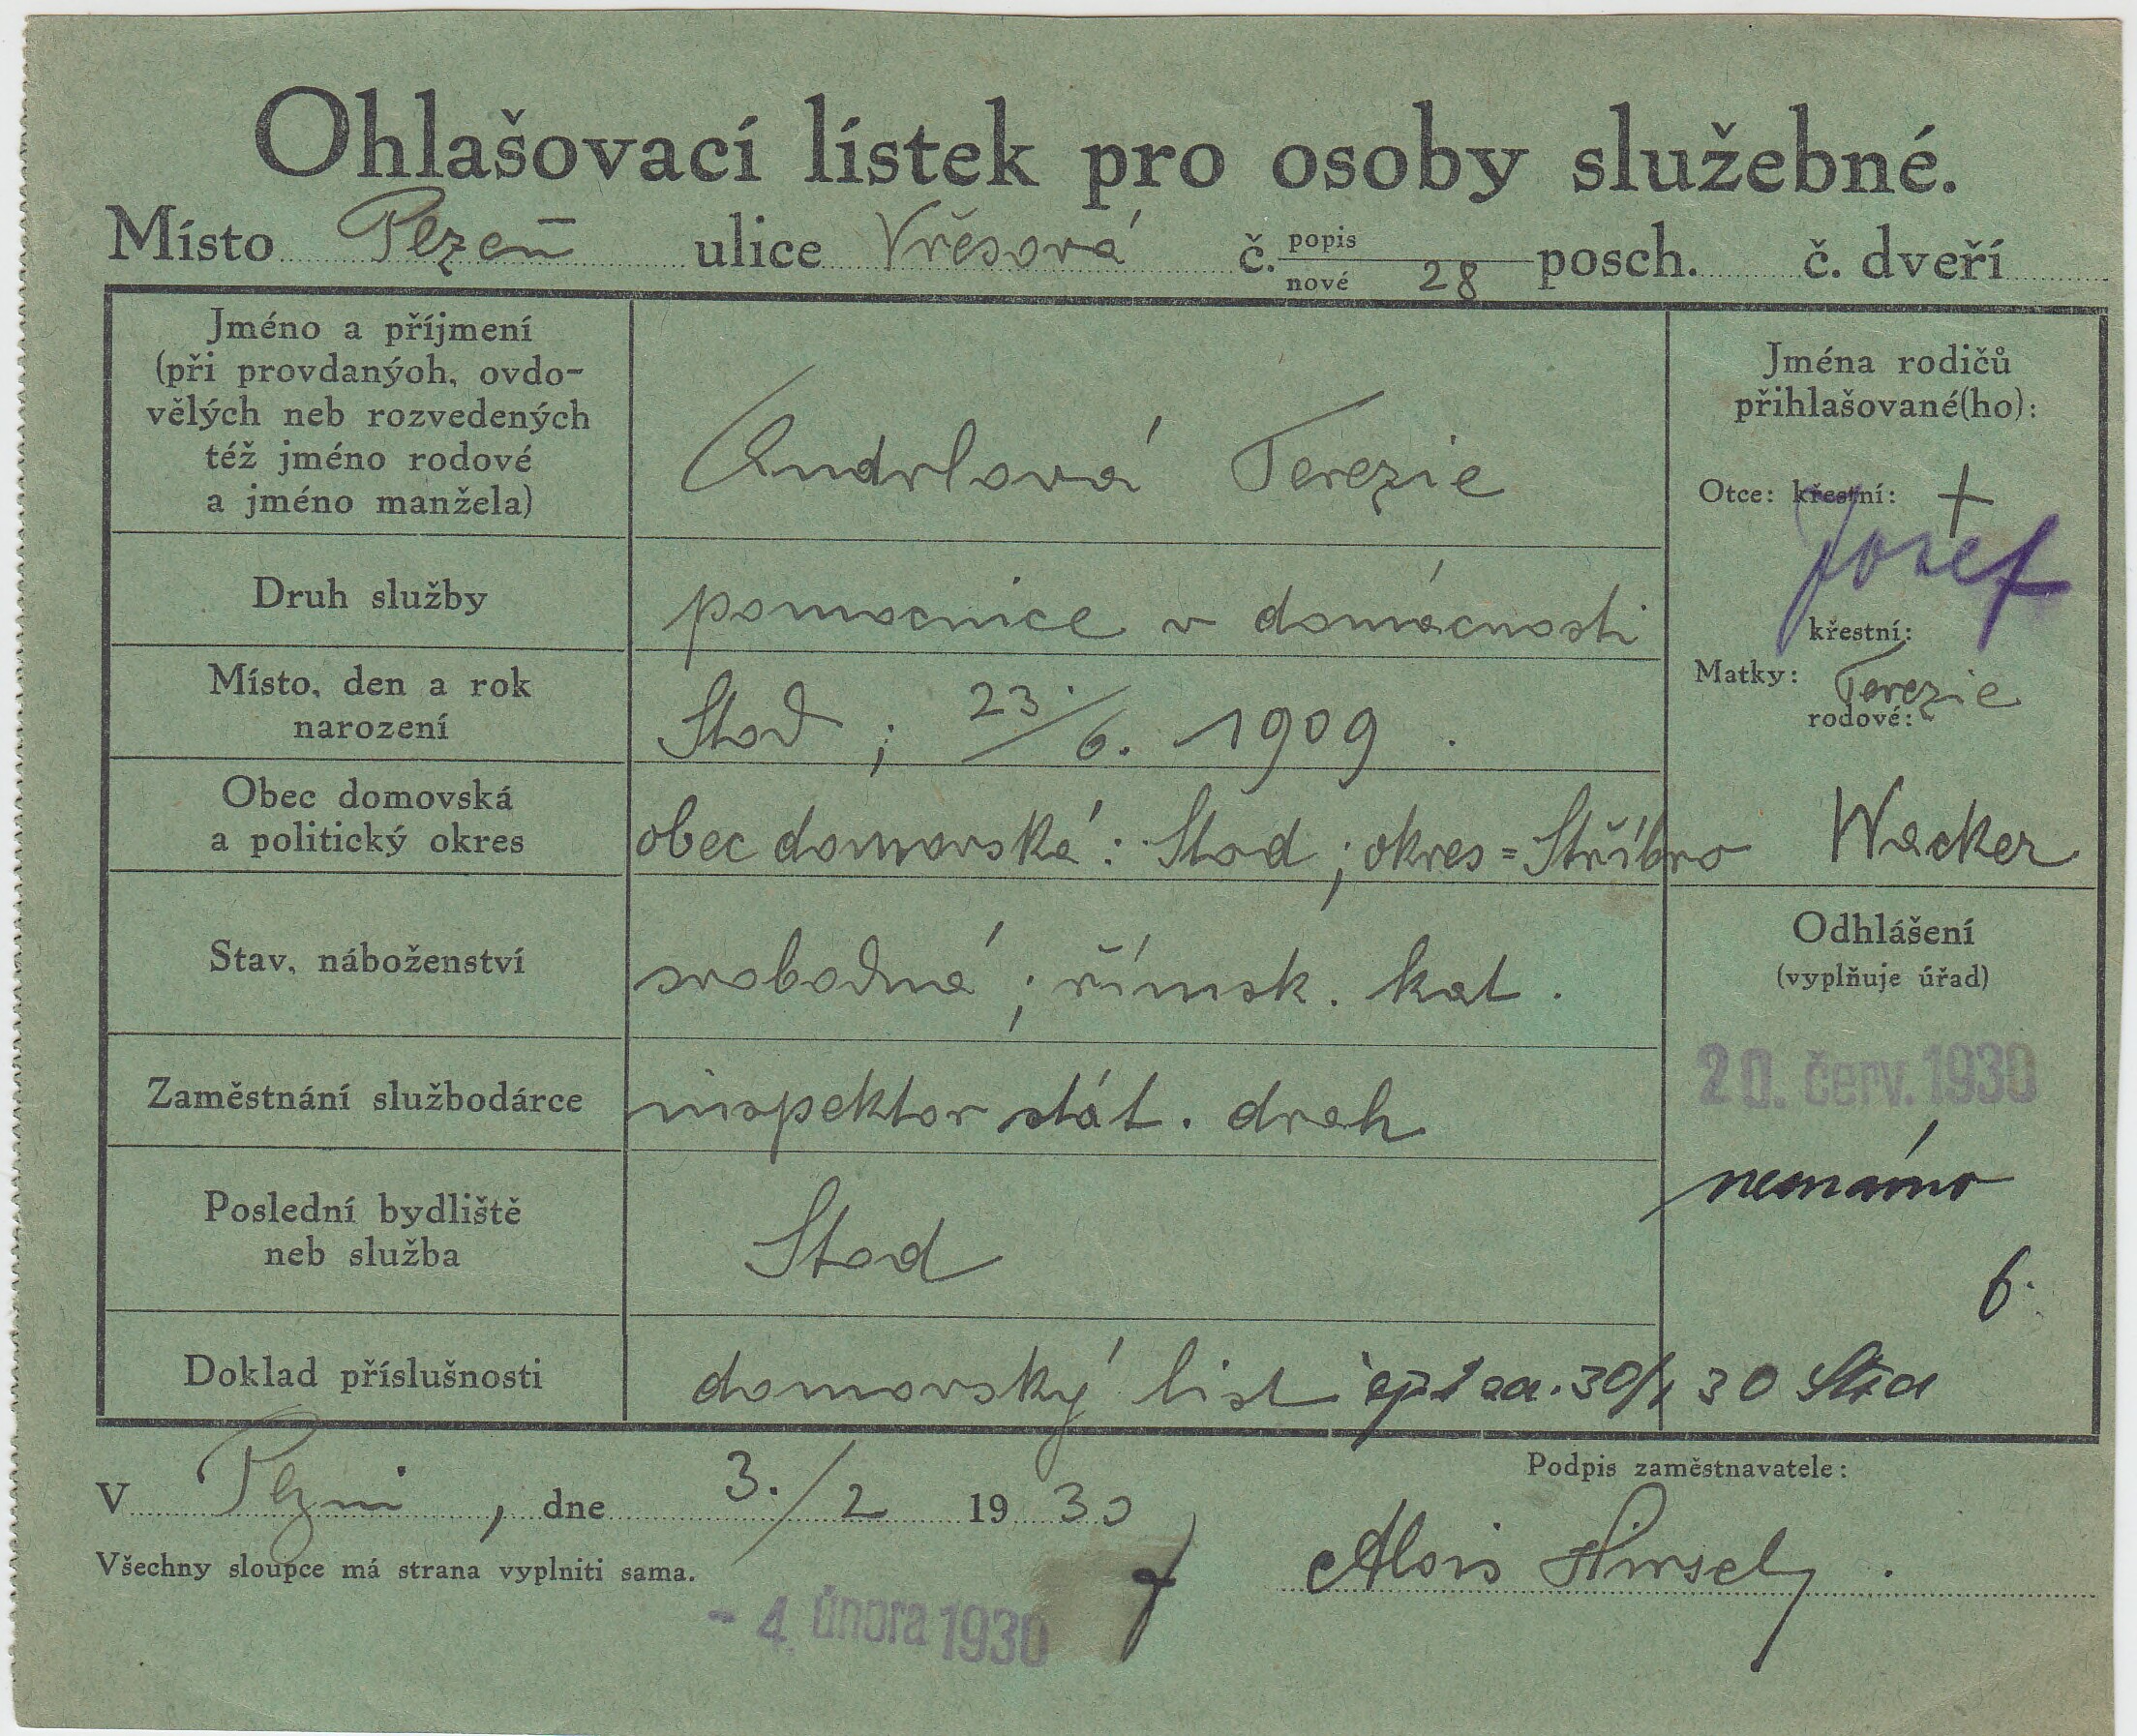 Ohlašovací lístek pro osoby služebné.
Místo Plzeň ulice Vřesová č. popis nové 28 posch. č. dveří
Jméno a příjmení
(při provdanýoh, ovdo-
vělých neb rozvedených
též jméno rodové
a jméno manžela)
Andrlová Terezie
Jména rodičů
přihlašované(ho):
Otce: křestní: +
Josef
křestní:
Matky: Terezie
rodové:
Wacker
Druh služby
pomocnice v domácnosti
Místo, den a rok
narození
Stod ; 23./6. 1909.
Obec domovská
a politický okres
obec domovská: Stod ; okres = Stříbro
Stav, náboženství
svobodná ; římsk. kat.
Odhlášení
(vyplňuje úřad)
20. červ. 1930
neznámo
6.
Zaměstnání službodárce
inspektor stát. drah
Poslední bydliště
neb služba
Stod
Doklad příslušnosti
domovský list 30/1 30 Stod
V Plzni, dne 3./2 1930
Podpis zaměstnavatele:
Alois
Všechny sloupce má strana vyplniti sama.
- 4. února 1930